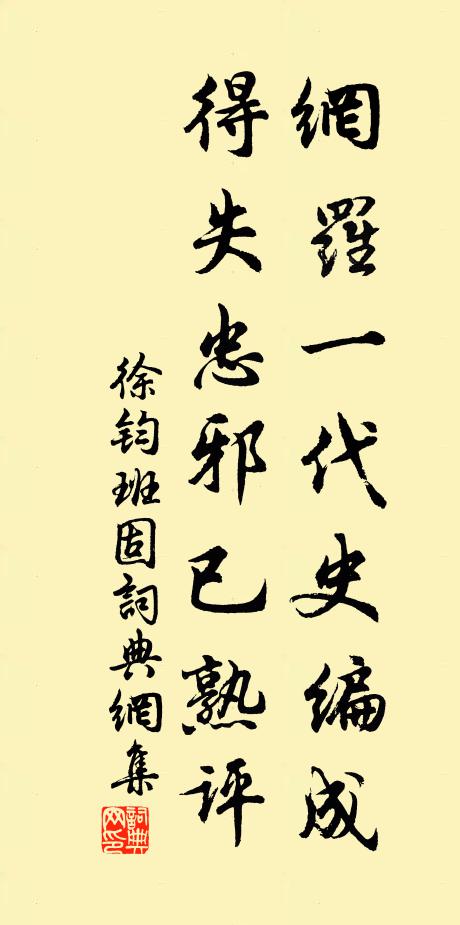 網羅一代史編成
得失忠邪已熟評
徐鈞班固詞典網集
詞典網印